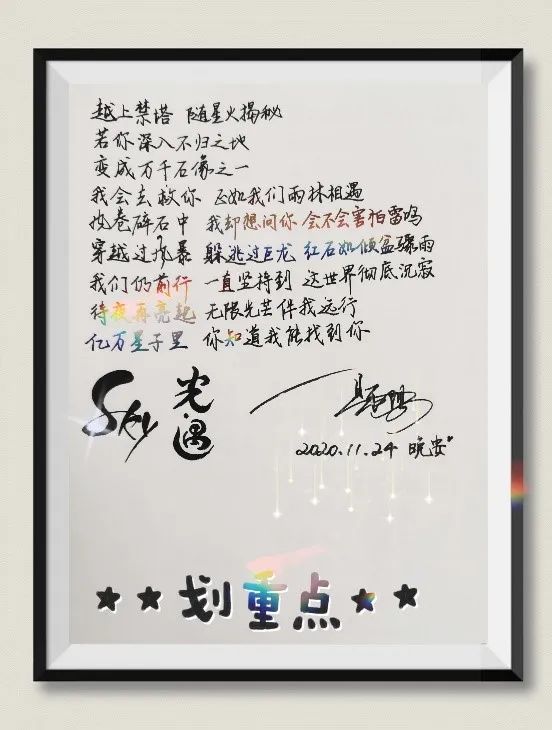 越上禁塔 随星火揭秘
若你深入不归之地
变成万千石像之一
我会去救你 正如我们雨林相遇
卷碎石中 我却想问你 会不会害怕雷吗
穿越过风暴 躲逃过巨龙 红石如倾盆骤雨
我们仍前行 一直坚持到 这世界彻底沉寂
待夜再亮起 无限光芒伴我远行
亿万星子里 你知道我能找到你
Sky 光遇
2020.11.24 晚安
★ ★ 划重点 ★ ★